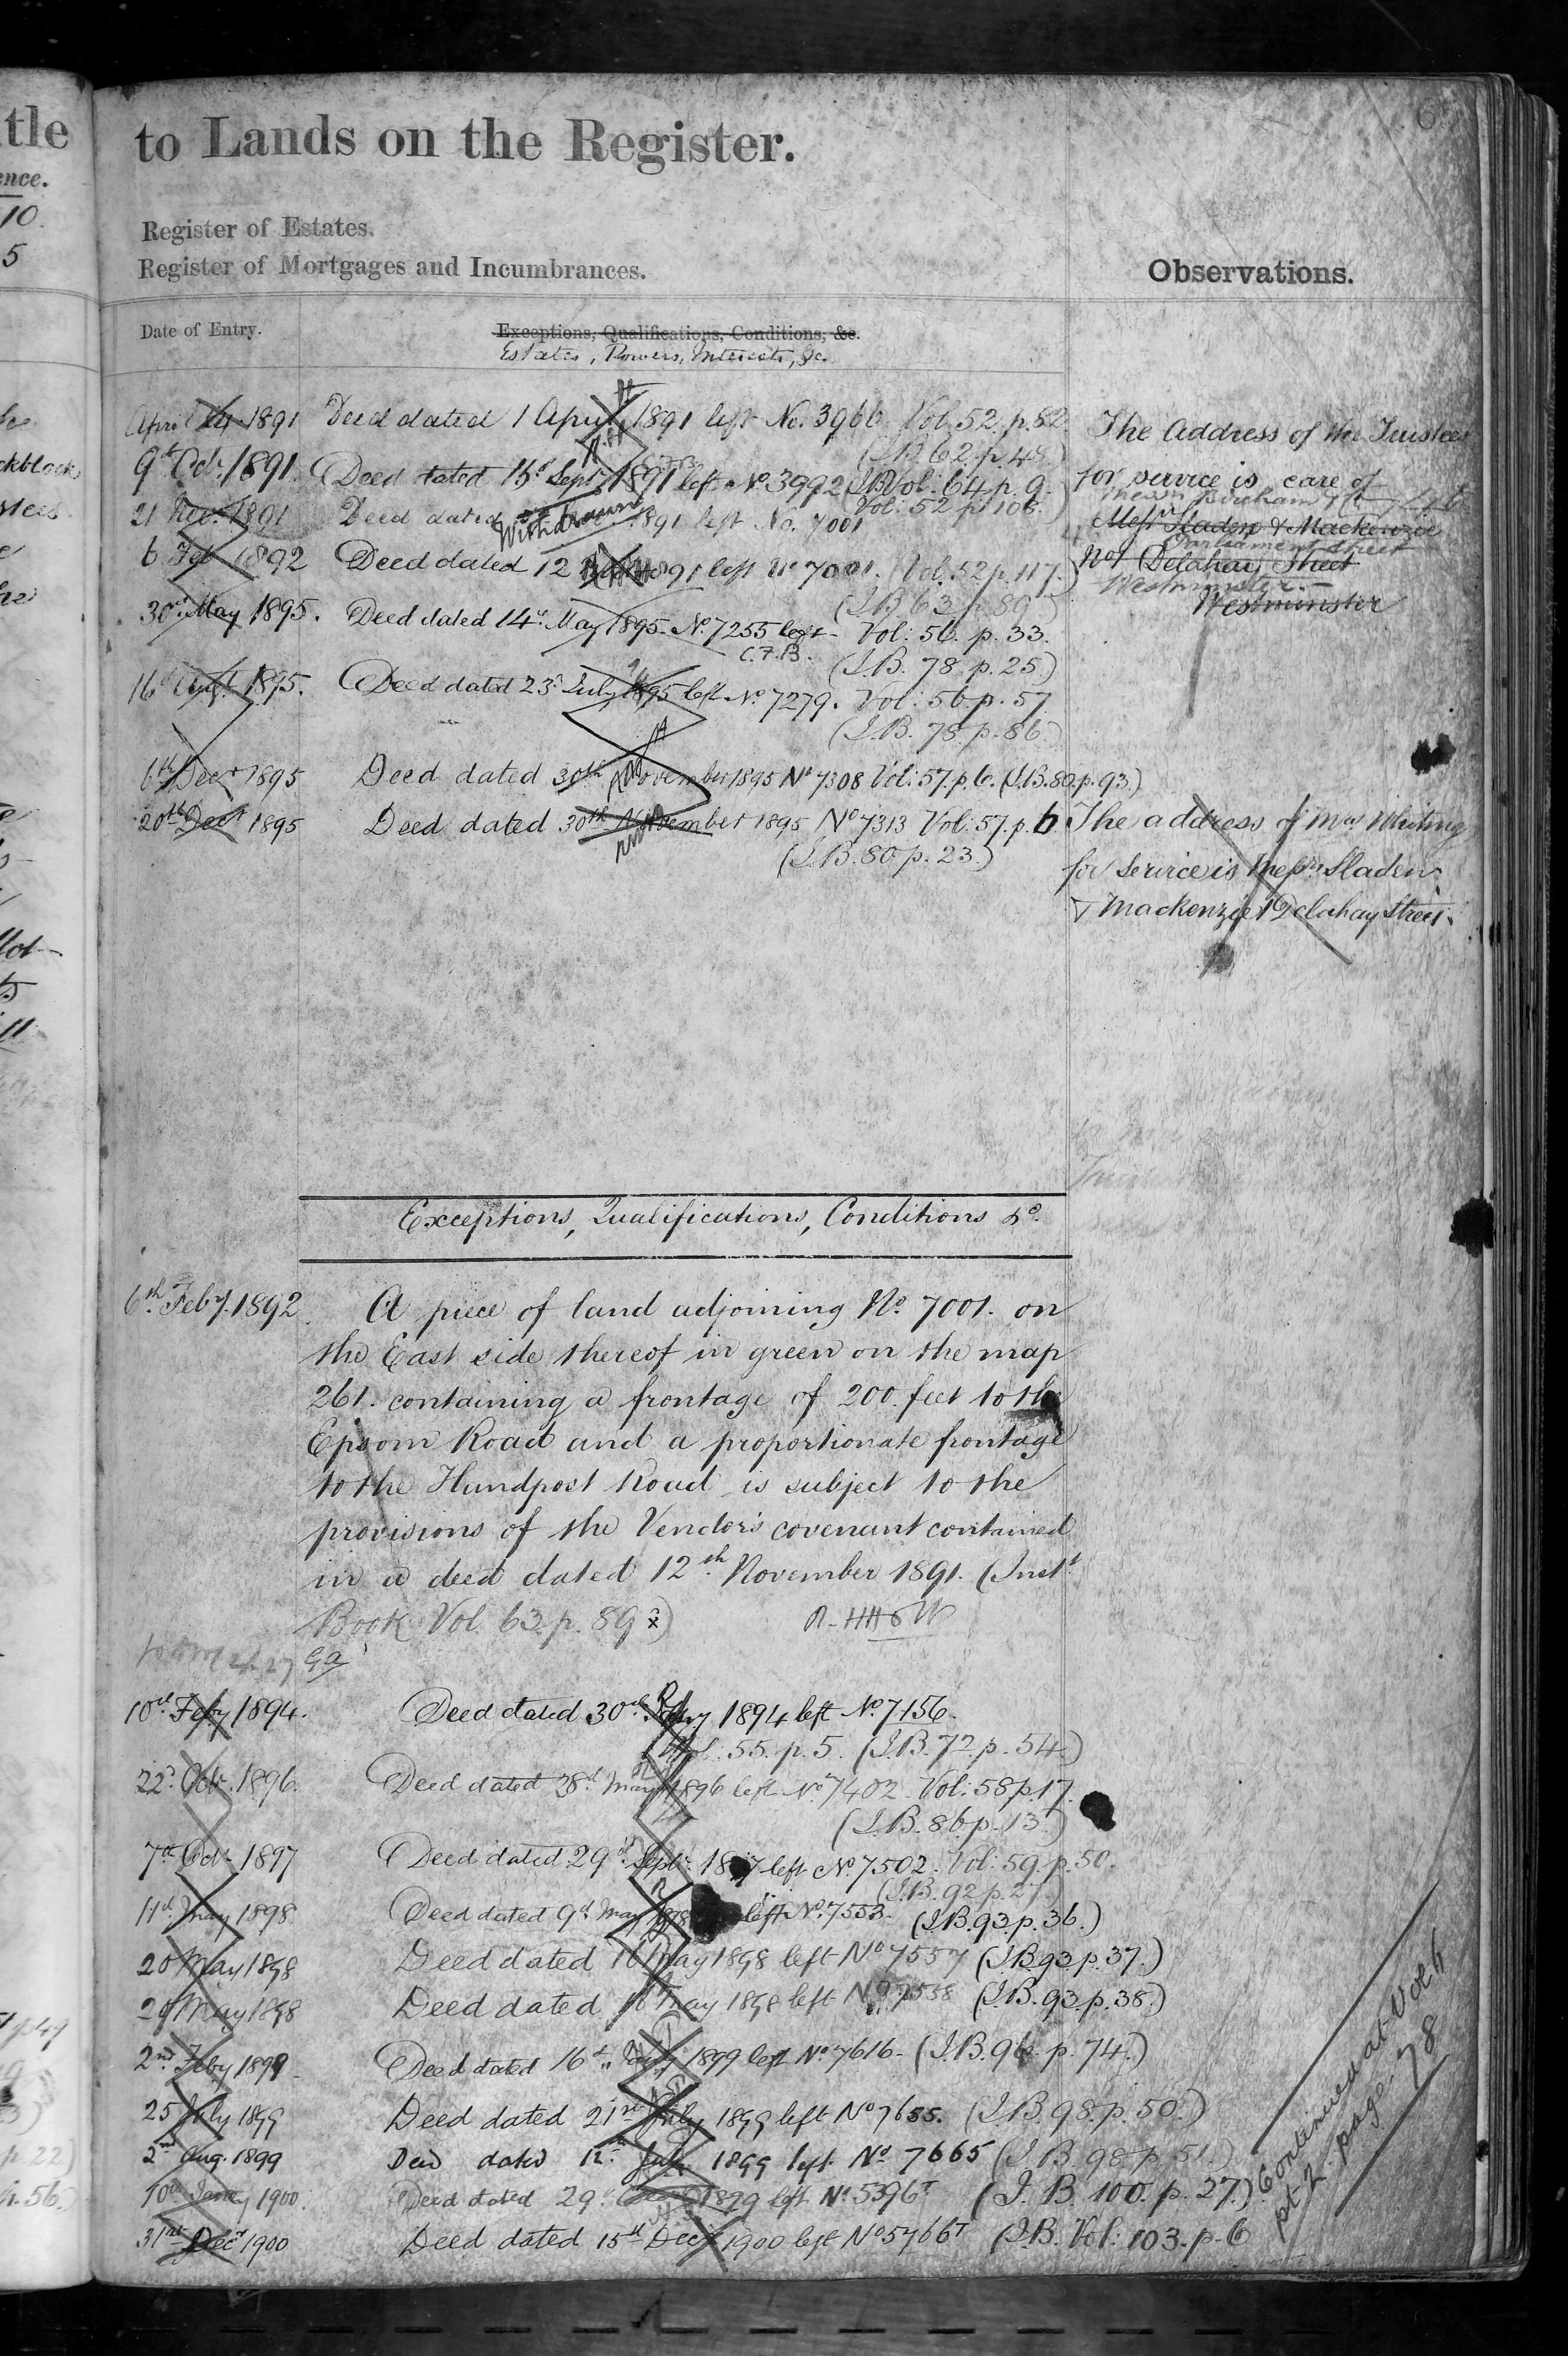 to Lands on the Register.
Register of Estates.
Register of Mortgages and Incumbrances.
Observations.
Date of Entry.
Exceptions, Qualifications, Conditions, &c.
Estates, Powers, Interests, &c.
April 14 1891 Deed dated 1 April 1891 left No. 3966 Vol. 52. p. 82.
(I.B. 62. p. 48.)
9th Octr. 1891. Deed dated 15th Septr 1891 left No. 3992 (I.B. Vol: 64. p. 9.
Vol: 52 p. 106.)
21 Nov. 1891 Deed dated 1891 left No. 7001
Withdrawn
6 Feb 1892 Deed dated 12 1891 left No 7001. (Vol. 52 p. 117.
(I.B 63. p. 89)
30th May 1895. Deed dated 14th May 1895. No. 7255 left Vol: 56. p. 33.
C.F.B. (I.B. 78 p. 25.)
16th Augt 1895. Deed dated 23d July 1895 left No. 7279. Vol: 56. p. 57.
(I.B. 78. p. 86.)
6th Decr 1895 Deed dated 30th November 1895 No 7308 Vol: 57. p. 6. (I.B. 80. p. 93.)
20th Decr 1895 Deed dated 30th November 1895 No 7313 Vol: 57. p. 6
(I.B. 80. p. 23.)
The Address of the Trustees
for service is care of
Messrs Bircham & Co
Messrs Sladen & Mackenzie
Parliament Street
No 1 Delahay Street
Westminster.
Westminster
The address of Mrs Whiting
for service is Messrs Sladen
& Mackenzie 1 Delahay Street.
Exceptions, Qualifications, Conditions &c.
6th Feby. 1892. A piece of land adjoining No. 7001. on
the East side thereof in green on the map
261. containing a frontage of 200 feet to the
Epsom Road and a proportionate frontage
to the Hundpost Road is subject to the
provisions of the Vendor's covenant contained
in a deed dated 12th November 1891. (Inst
Book Vol. 63. p. 89)
10th Feby 1894. Deed dated 30th Jany 1894 left No. 7156.
Vol: 55. p. 5. (I.B. 72. p. 54.)
22d Octr. 1896. Deed dated 28th May 1896 left No. 7402. Vol: 58 p. 17.
(I.B. 86. p. 13.)
7th Octr 1897 Deed dated 29th Septr. 1897 left No. 7502. Vol: 59. p. 50.
(I.B. 92 p. 27.)
11th May 1898. Deed dated 9th May 1898 left No. 7553. (I.B. 93. p. 36.)
20 May 1898 Deed dated 16 May 1898 left No 7557 (I.B. 93. p. 37.)
20 May 1898 Deed dated 16 May 1898 left No 7558 (I.B. 93. p. 38.)
2nd Feby 1899 Deed dated 16th 1899 left No. 7616. (I.B. 96. p. 74.)
25 July 1899 Deed dated 21st July 1899 left No 7655. (I.B. 98. p. 50.)
2nd Aug. 1899 Deed dated 12th July 1899 left No. 7665 (I.B. 98 p. 51.)
10th Jany 1900. Deed dated 29th 1899 left No. 5396T (I.B. 100. p. 27.)
31st Decr 1900 Deed dated 15th Decr 1900 left No 5766T (I.B. Vol: 103. p. 6
Continued at Vol 4
pt 2 page 78